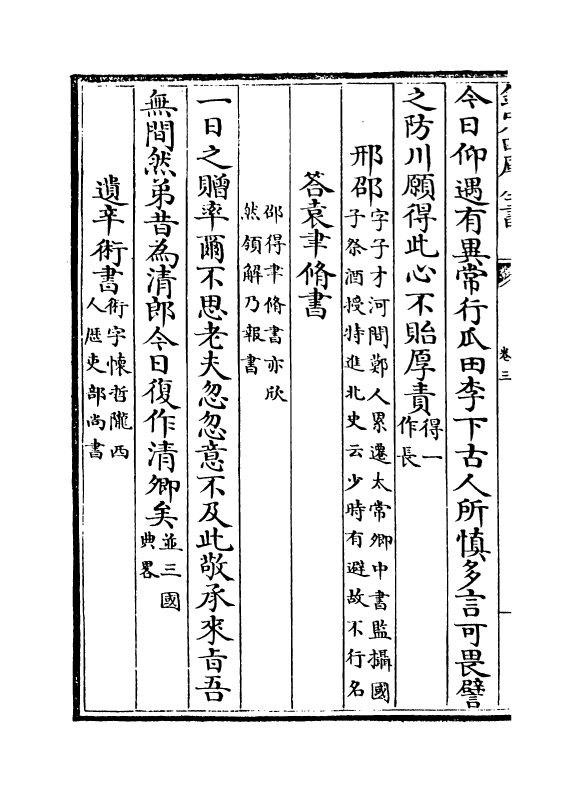 卷三
今日仰遇有異常行瓜田李下古人所慎多言可畏譬
之防川願得此心不貽厚責得一
作長
邢邵字子才河間鄭人累遷太常卿中書監攝國
子祭酒授特進北史云少時有避故不行名
答袁聿脩書
邵得聿脩書亦欣
然領解乃報書
一日之贈率爾不思老夫忽忽意不及此敬承來㫖吾
無間然弟昔為清郎今日復作清卿矣並三國
典畧
遺辛術書術字懐哲隴西
人歴吏部尚書